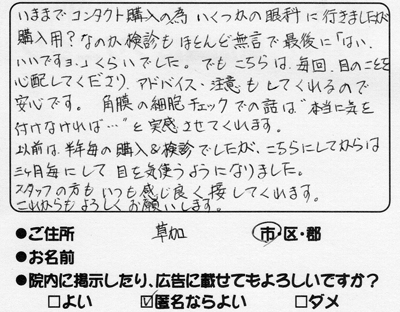 いままでコンタクト購入の為 いくつかの眼科に行きましたが
購入用?なのか検診もほとんど無言で最後に「はい、
いいですョ.」くらいでした。でもこちらは、毎回、目のことを
心配してくださり、アドバイス・注意もしてくれるので
安心です。角膜の細胞チェックでの話は"本当に気を
付けなければ…"と実感させてくれます。
以前は、半年毎の購入&検診でしたが、こちらにしてからは
三ヶ月毎にして目を気使うようになりました。
スタッフの方もいつも感じ良く接してくれます。
これからもよろしくお願いします。
●ご住所 草加 市・区・郡
●お名前
●院内に掲示したり、広告に載せてもよろしいですか?
□よい ☑匿名ならよい □ダメ